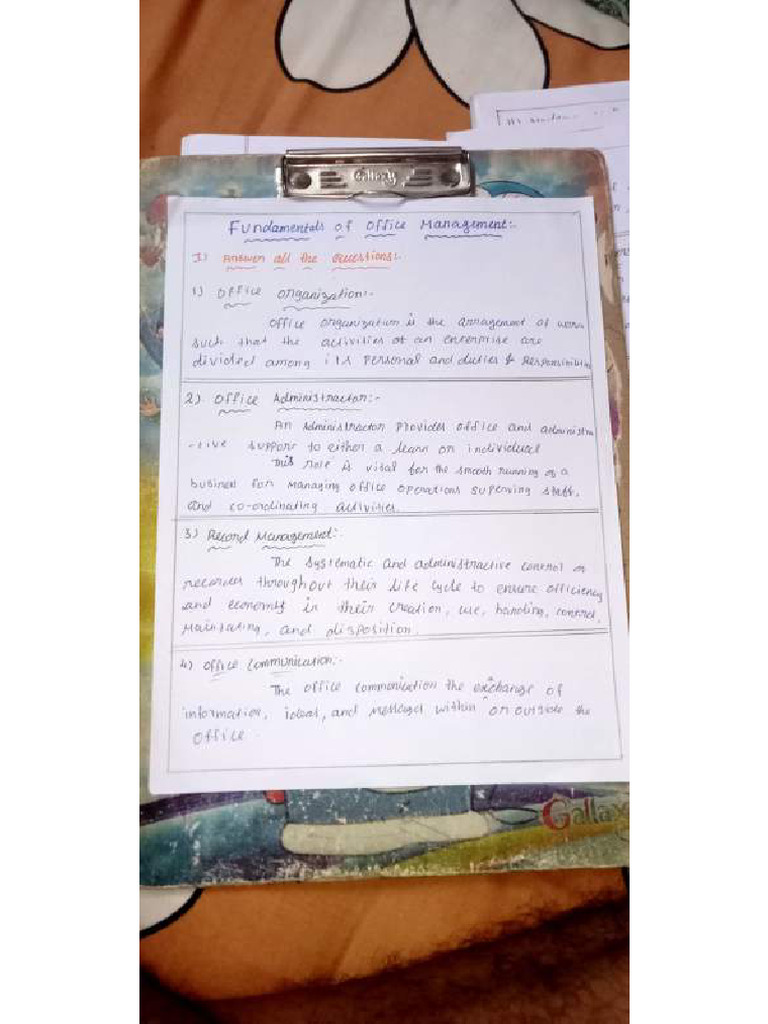 Gallaxy
Fundamentals of Office Management:-
I) Answer all the Quecstions:-
1) Office Organization:-
Office Organization is the arrangement of work
such that the activities of an enterprise are
divided among its Personal and duties & Responsibilities
2) Office Administractor:-
An Administractor Provides office and administra
-tive support to either a team or individual
This role is vital for the smooth running of a
business for managing office operations superving staff,
and co-ordinating activities.
3) Record Management:-
The systematic and administractive control of
recordes throughout their life cycle to ensure efficiency
and economy in their creation, use, handling, control,
Maintating, and disposition.
4) Office Communication:-
The office communication the exchange of
information, ideas, and messages within or outside the
office.
Gallax